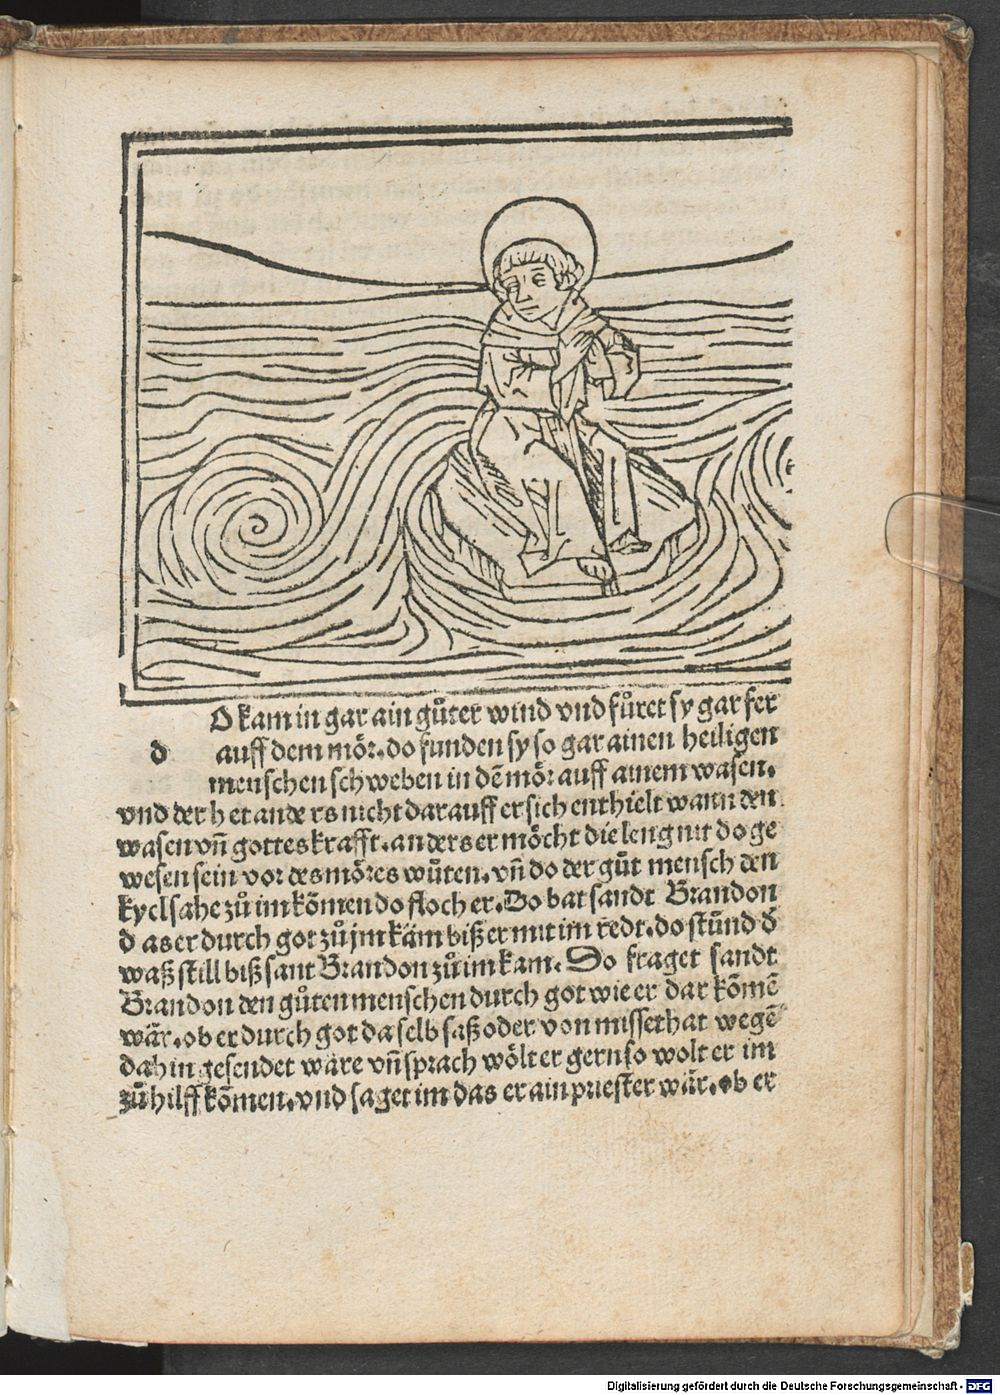 O kam in gar ain gůter wind vnd fůret sy gar fer
d auff dem mör. do funden sy so gar ainen heiligen
menschen schweben in dē mör auff ainem wasen.
vnd der het anders nicht darauff er sich enthielt wann den
wasen vn̄ gottes krafft. anders er möcht die leng nit do ge
wesen sein vor des möres wůten. vn̄ do der gůt mensch den
kyel sahe zů im kōmen do floch er. Do bat sandt Brandon
d as er durch got zů jm käm biß er mit im redt. do stůnd d̄
waß still biß sant Brandon zů im kam. Do fraget sandt
Brandon den gůten menschen durch got wie er dar kōmē
wär. ob er durch got da selb saß oder von missethat wegē
dahin gesendet wäre vn̄ sprach wölt er gern so wolt er im
zů hilff kōmen. vnd saget im das er ain priester wär. ob er
Digitalisierung gefördert durch die Deutsche Forschungsgemeinschaft - DFG